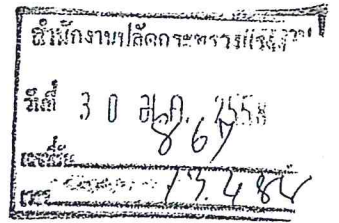 สำนักงานปลัดกระทรวงแรงงาน
วันที่ 30 ม.ค. 2558
เลขรับ 867
เวลา